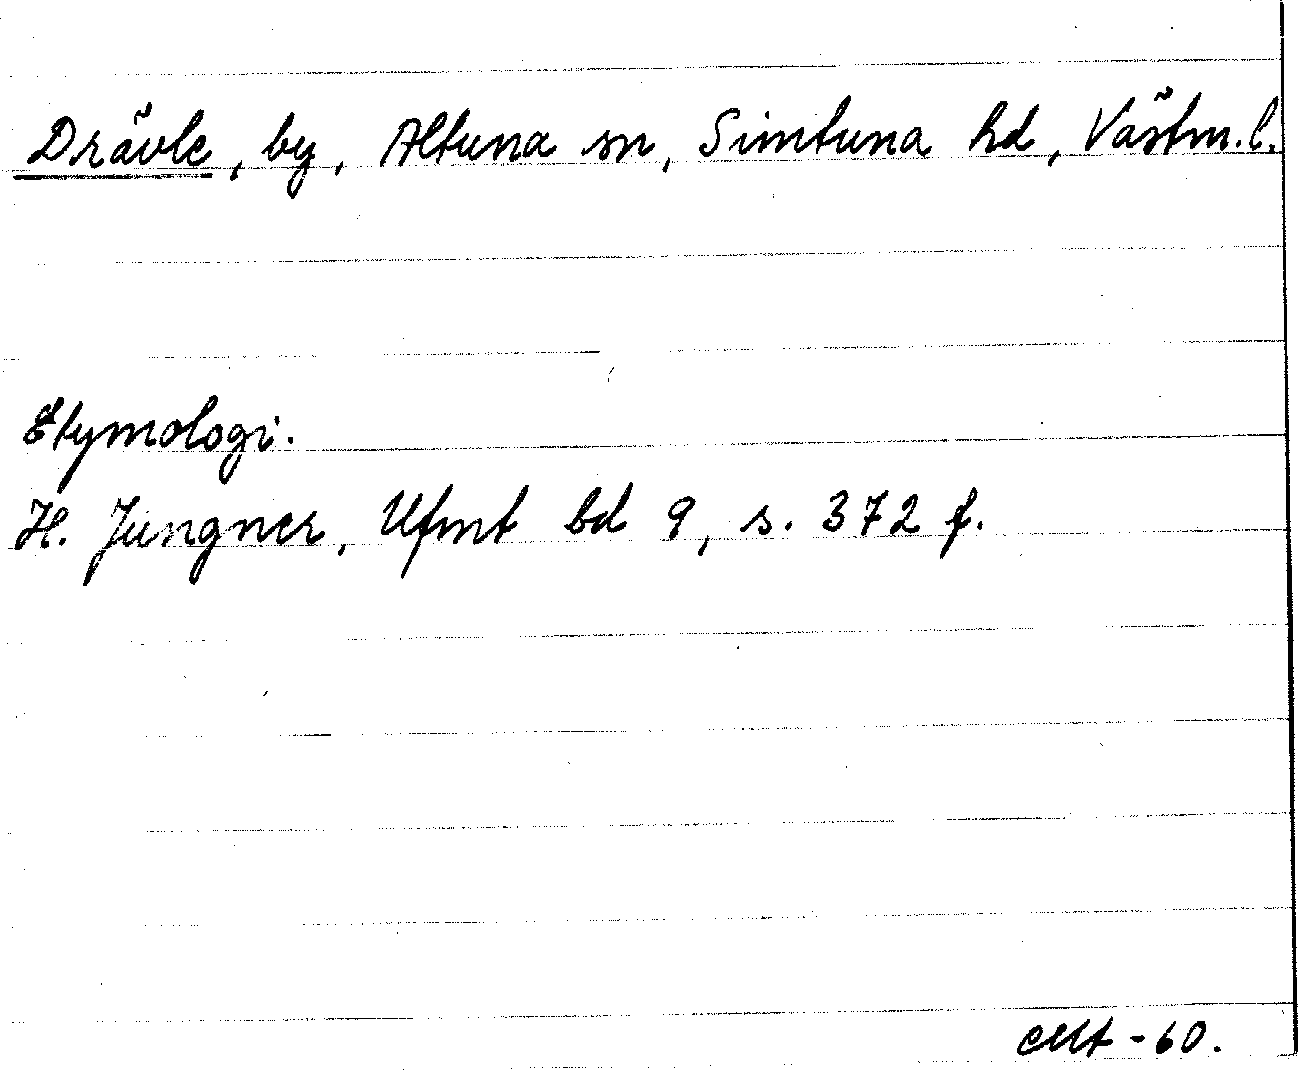 Drävle, by, Altuna sn, Simtuna hd, Västm.l.
Etymologi.
H. Jungner, Ufmt bd 9, s. 372 f.
-60.